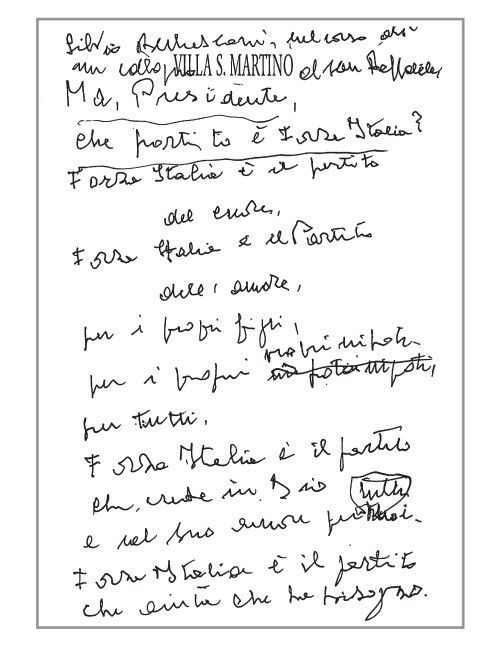 Silvio Berlusconi, nel corso di
un colloquio al san Raffaele,
VILLA S. MARTINO
Ma, Presidente,
che partito è Forza Italia?
Forza Italia è il partito
del cuore,
Forza Italia è il Partito
dell'amore,
per i propri figli,
per i propri propri nipoti,
per tutti.
Forza Italia è il partito
che crede in Dio
e nel suo amore per tutti noi.
Forza Italia è il partito
che aiuta chi ha bisogno.